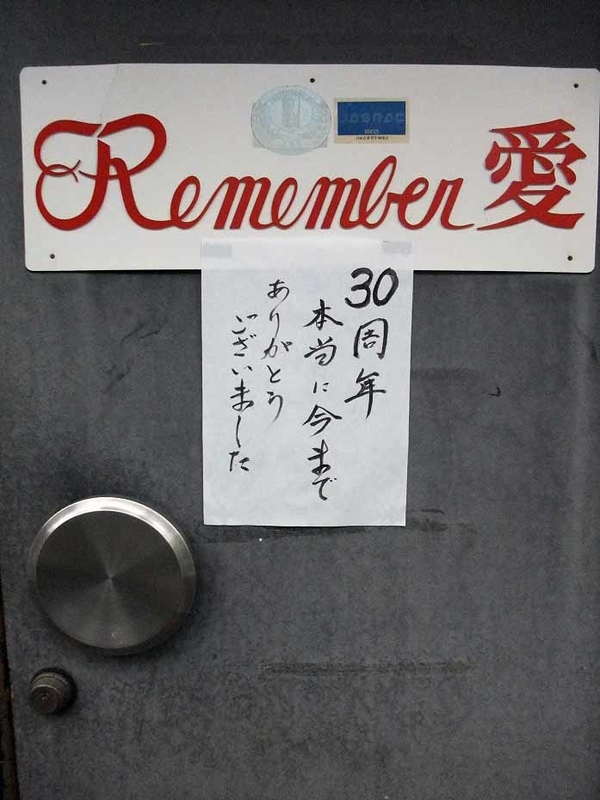 Remember 愛
JASRAC
30周年
本当に今まで
ありがとう
ございました